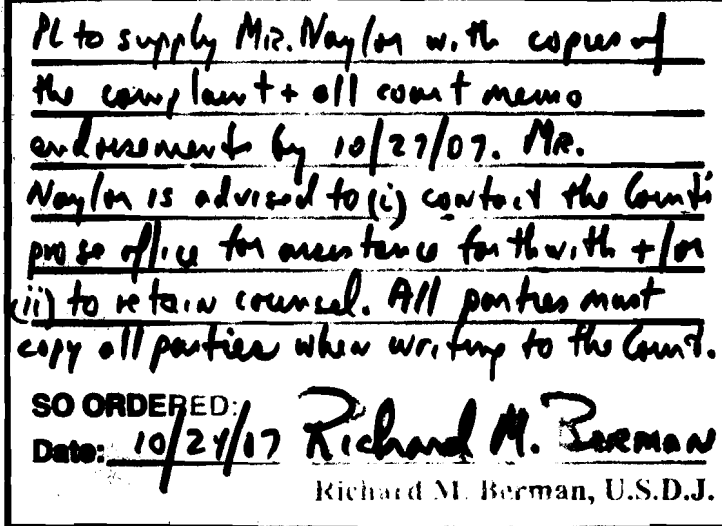 Pl to supply Mr. Naylor with copies of
the complaint + all court memo
endorsements by 10/27/07. Mr.
Naylor is advised to (i) contact the Court's
pro se office for assistance forthwith + / or
(ii) to retain counsel. All parties must
copy all parties when writing to the Court.
SO ORDERED:
Date: 10/24/07 Richard M. Berman
Richard M. Berman, U.S.D.J.